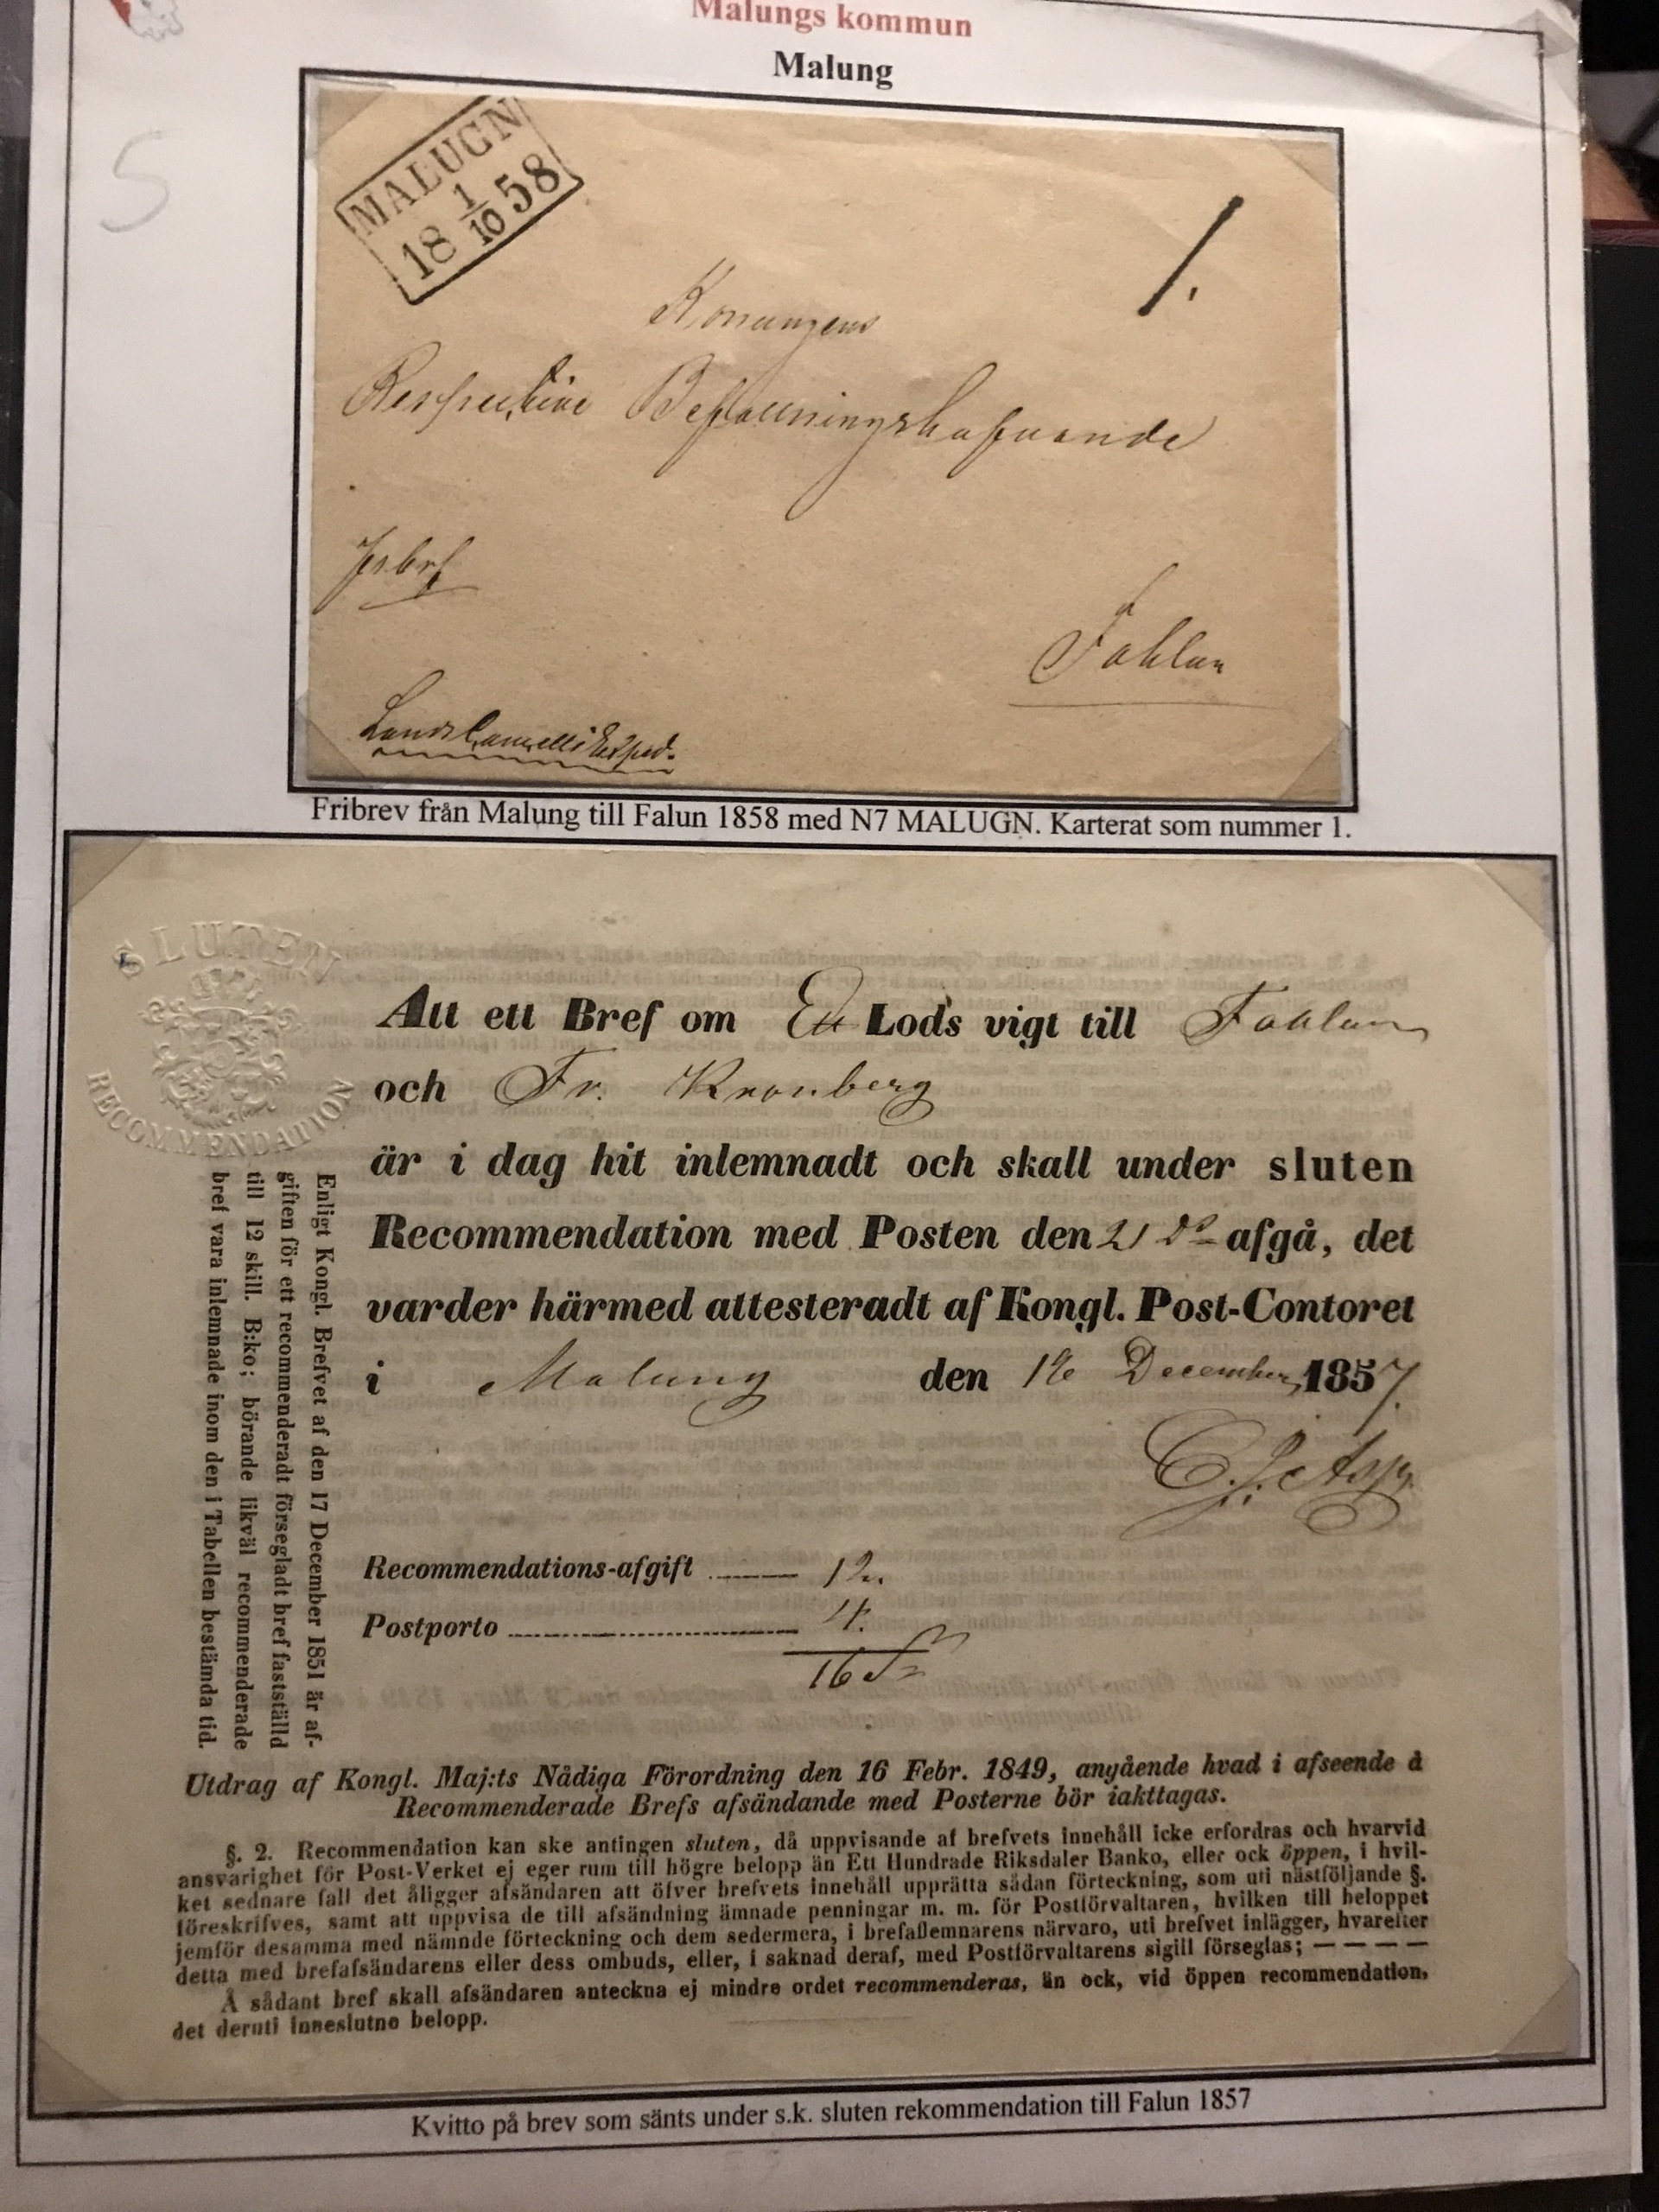 Malungs kommun
Malung
S
MALUGN
18 1/10 58
1.
Konungens
Respective Befallningshafvande
Frbrf
Fahlun
LandsCancelli Exped.
Fribrev från Malung till Falun 1858 med N7 MALUGN. Karterat som nummer 1.
SLUTEN
RECOMMENDATION
Att ett Bref om Ett Lods vigt till Fahlun
och Fr. Kronberg
är i dag hit inlemnadt och skall under sluten
Recommendation med Posten den 21 ds afgå, det
varder härmed attesteradt af Kongl. Post-Contoret
i Malung den 16 December 1857.
C. J. Asp
Recommendations-afgift 12.
Postporto 4.
16 s
Enligt Kongl. Brefvet af den 17 December 1851 är af-
giften för ett recommenderadt förseglädt bref fastställd
till 12 skill. B:ko; börande likväl recommenderade
bref vara inlemnade inom den i Tabellen bestämda tid.
Utdrag af Kongl. Maj:ts Nådiga Förordning den 16 Febr. 1849, angående hvad i afseende å
Recommenderade Brefs afsändande med Posterne bör iakttagas.
§. 2. Recommendation kan ske antingen sluten, då uppvisande af brefvets innehåll icke erfordras och hvarvid
ansvarighet för Post-Verket ej eger rum till högre belopp än Ett Hundrade Riksdaler Banko, eller ock öppen, i hvil-
ket sednare fall det åligger afsändaren att öfver brefvets innehåll upprätta sådan förteckning, som uti nästföljande §.
föreskrifves, samt att uppvisa de till afsändning ämnade penningar m. m. för Postförvaltaren, hvilken till beloppet
jemför desamma med nämnde förteckning och dem sedermera, i brefaflemnarens närvaro, uti brefvet inlägger, hvarefter
detta med brefafsändarens eller dess ombuds, eller, i saknad deraf, med Postförvaltarens sigill förseglas; — — — —
Å sådant bref skall afsändaren anteckna ej mindre ordet recommenderas, än ock, vid öppen recommendation,
det deruti inneslutne belopp.
Kvitto på brev som sänts under s.k. sluten rekommendation till Falun 1857